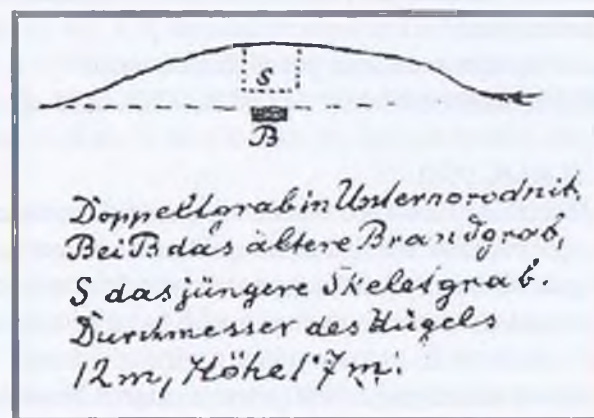 S
B
Doppeltgrab in Unternorodnit,
Bei B das ältere Brandgrab,
S das jüngere Skeletgrab.
Durchmesser des Hügels
12 m, Höhe 1·7 m.